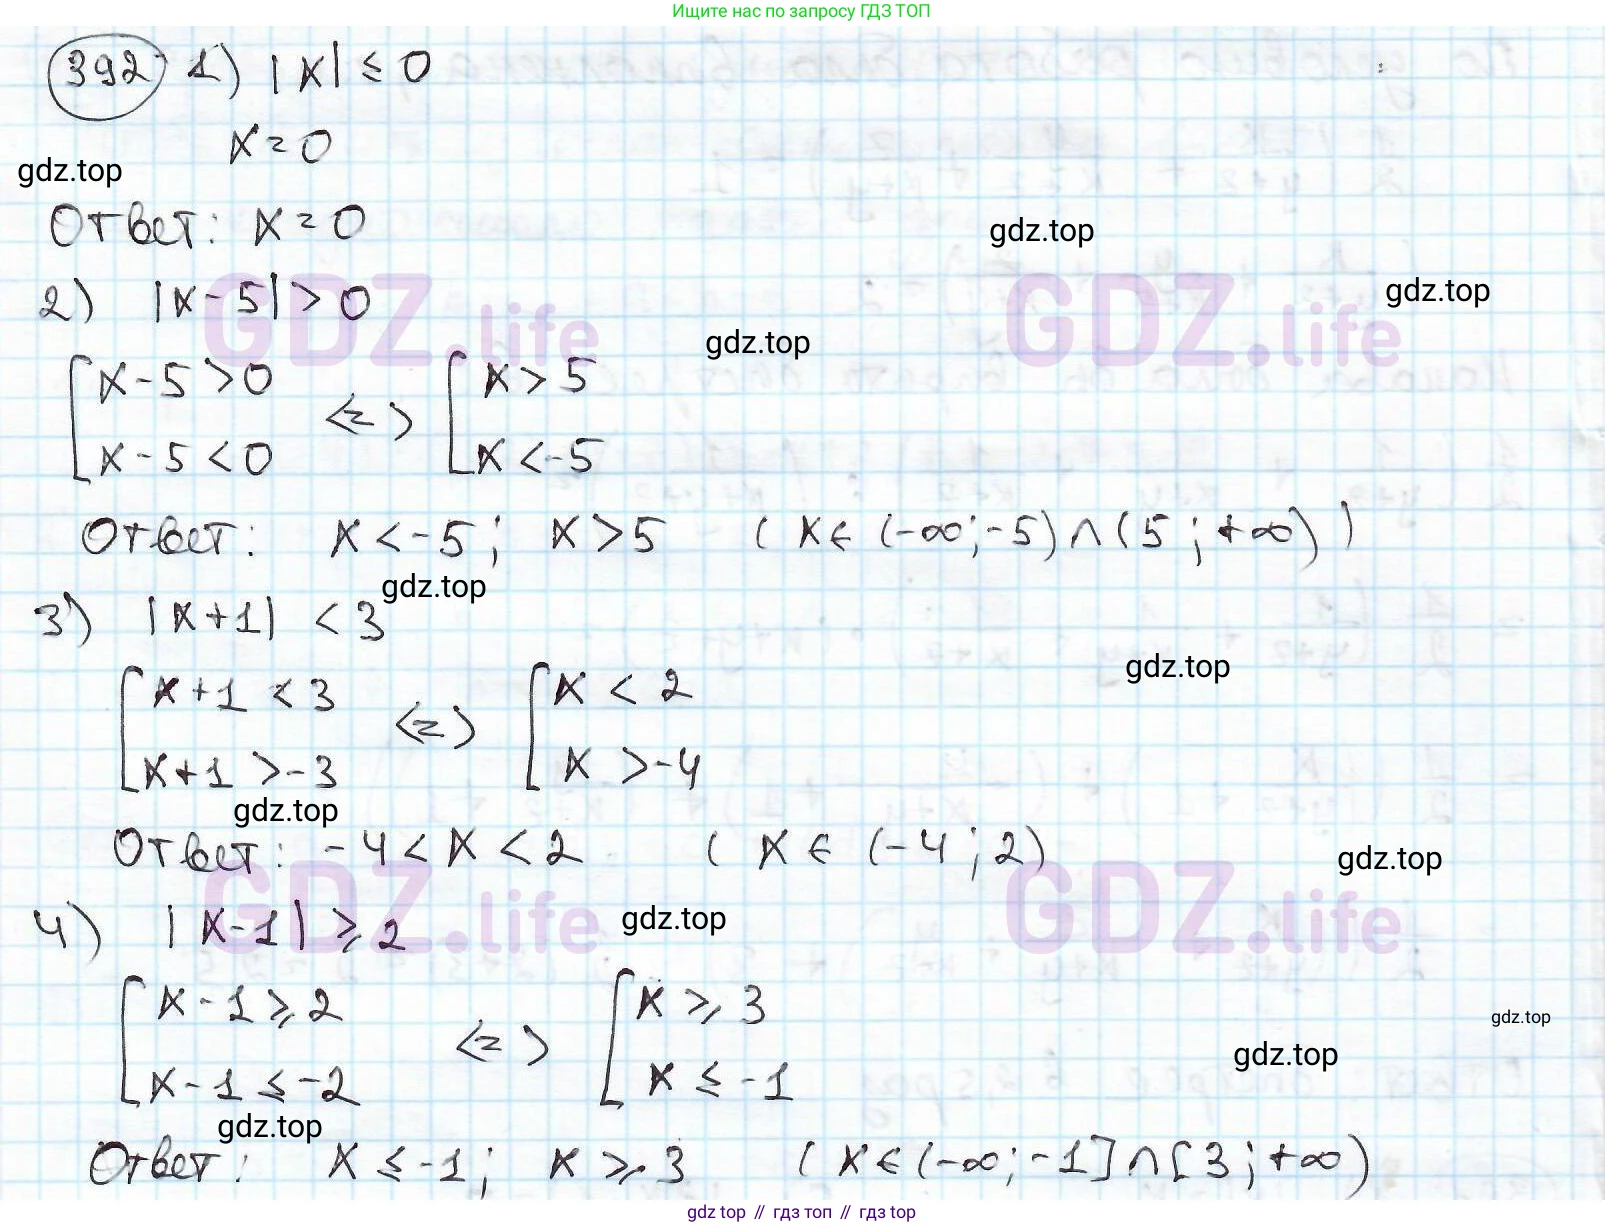 Ищите нас по запросу ГДЗ ТОП
392 1) |x| ≤ 0
x = 0
gdz.top
Ответ: x = 0
gdz.top
2) |x - 5| > 0
GDZ.life
GDZ.life
gdz.top
gdz.top
[ x - 5 > 0 <=> [ x > 5
[ x - 5 < 0 [ x < -5
Ответ: x < -5; x > 5 ( x ∈ (-∞; -5) ∩ (5; +∞) )
gdz.top
3) |x + 1| < 3
gdz.top
[ x + 1 < 3 <=> [ x < 2
[ x + 1 > -3 [ x > -4
gdz.top
Ответ: -4 < x < 2 ( x ∈ (-4; 2)
gdz.top
GDZ.life
GDZ.life
4) |x - 1| ≥ 2
gdz.top
[ x - 1 ≥ 2 <=> [ x ≥ 3
[ x - 1 ≤ -2 [ x ≤ -1
gdz.top
gdz.top
gdz.top
Ответ: x ≤ -1; x ≥ 3 ( x ∈ (-∞; -1] ∩ [3; +∞)
gdz top // гдз топ // гдз top